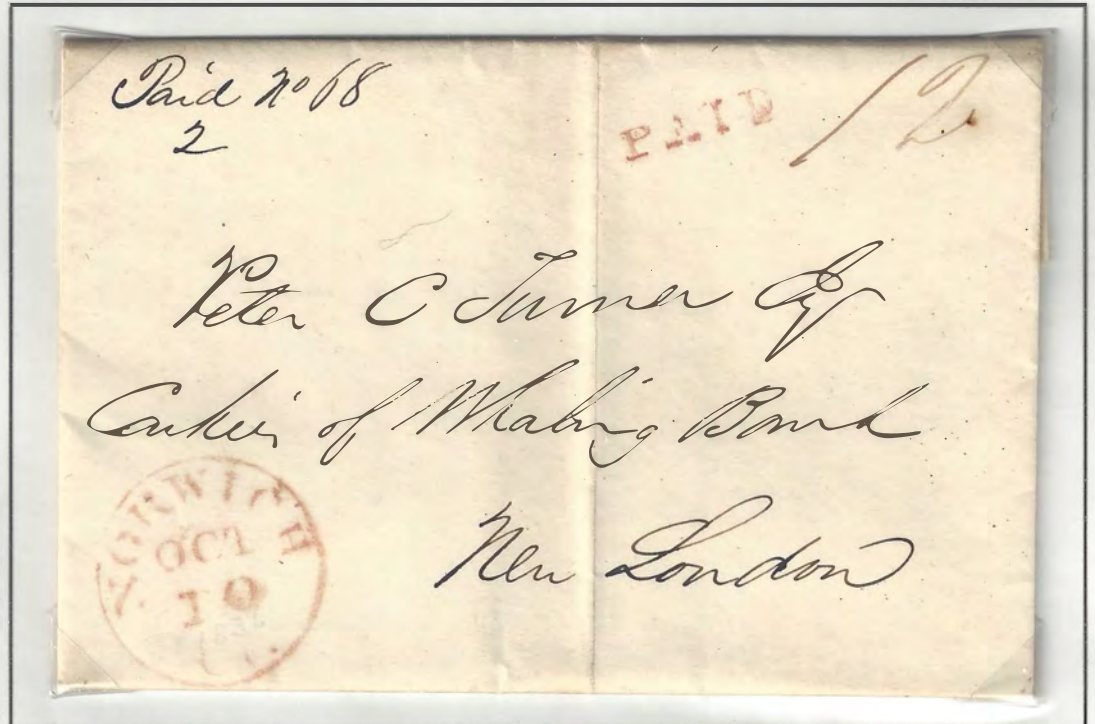 Paid No 68
2
PAID 12
Peter C Turner Esq
Cashier of Whaling Bank
New London
NORWICH
OCT
10